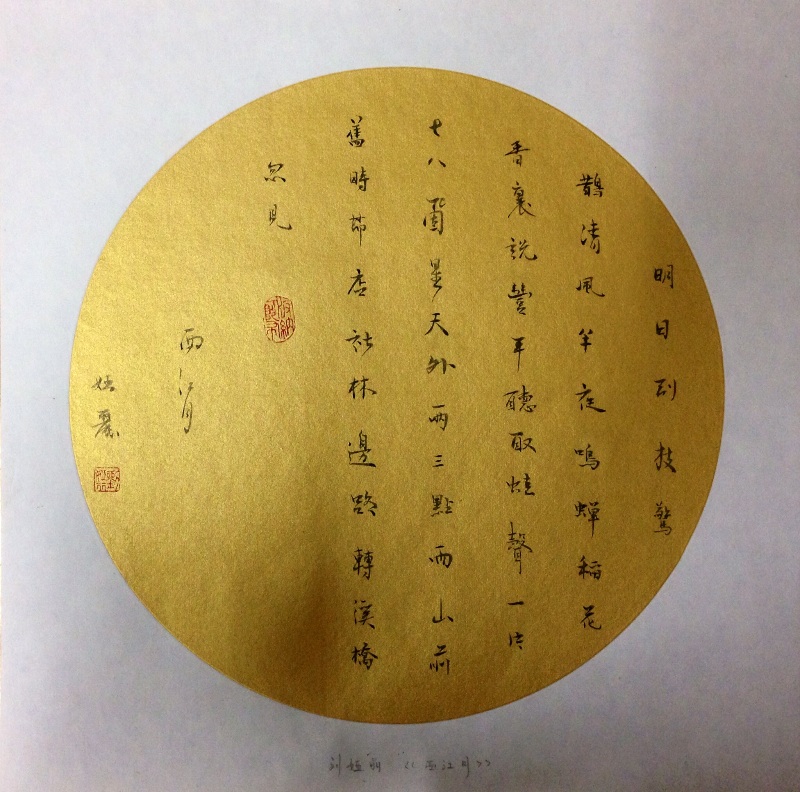 明日别枝驚
鵲清風半夜鳴蟬稻花
香裏説豐年聽取蛙聲一片
七八箇星天外兩三點雨山前
舊時茆店社林邊路轉溪橋
忽見
西江月
麗
刘 丽 《西江月》